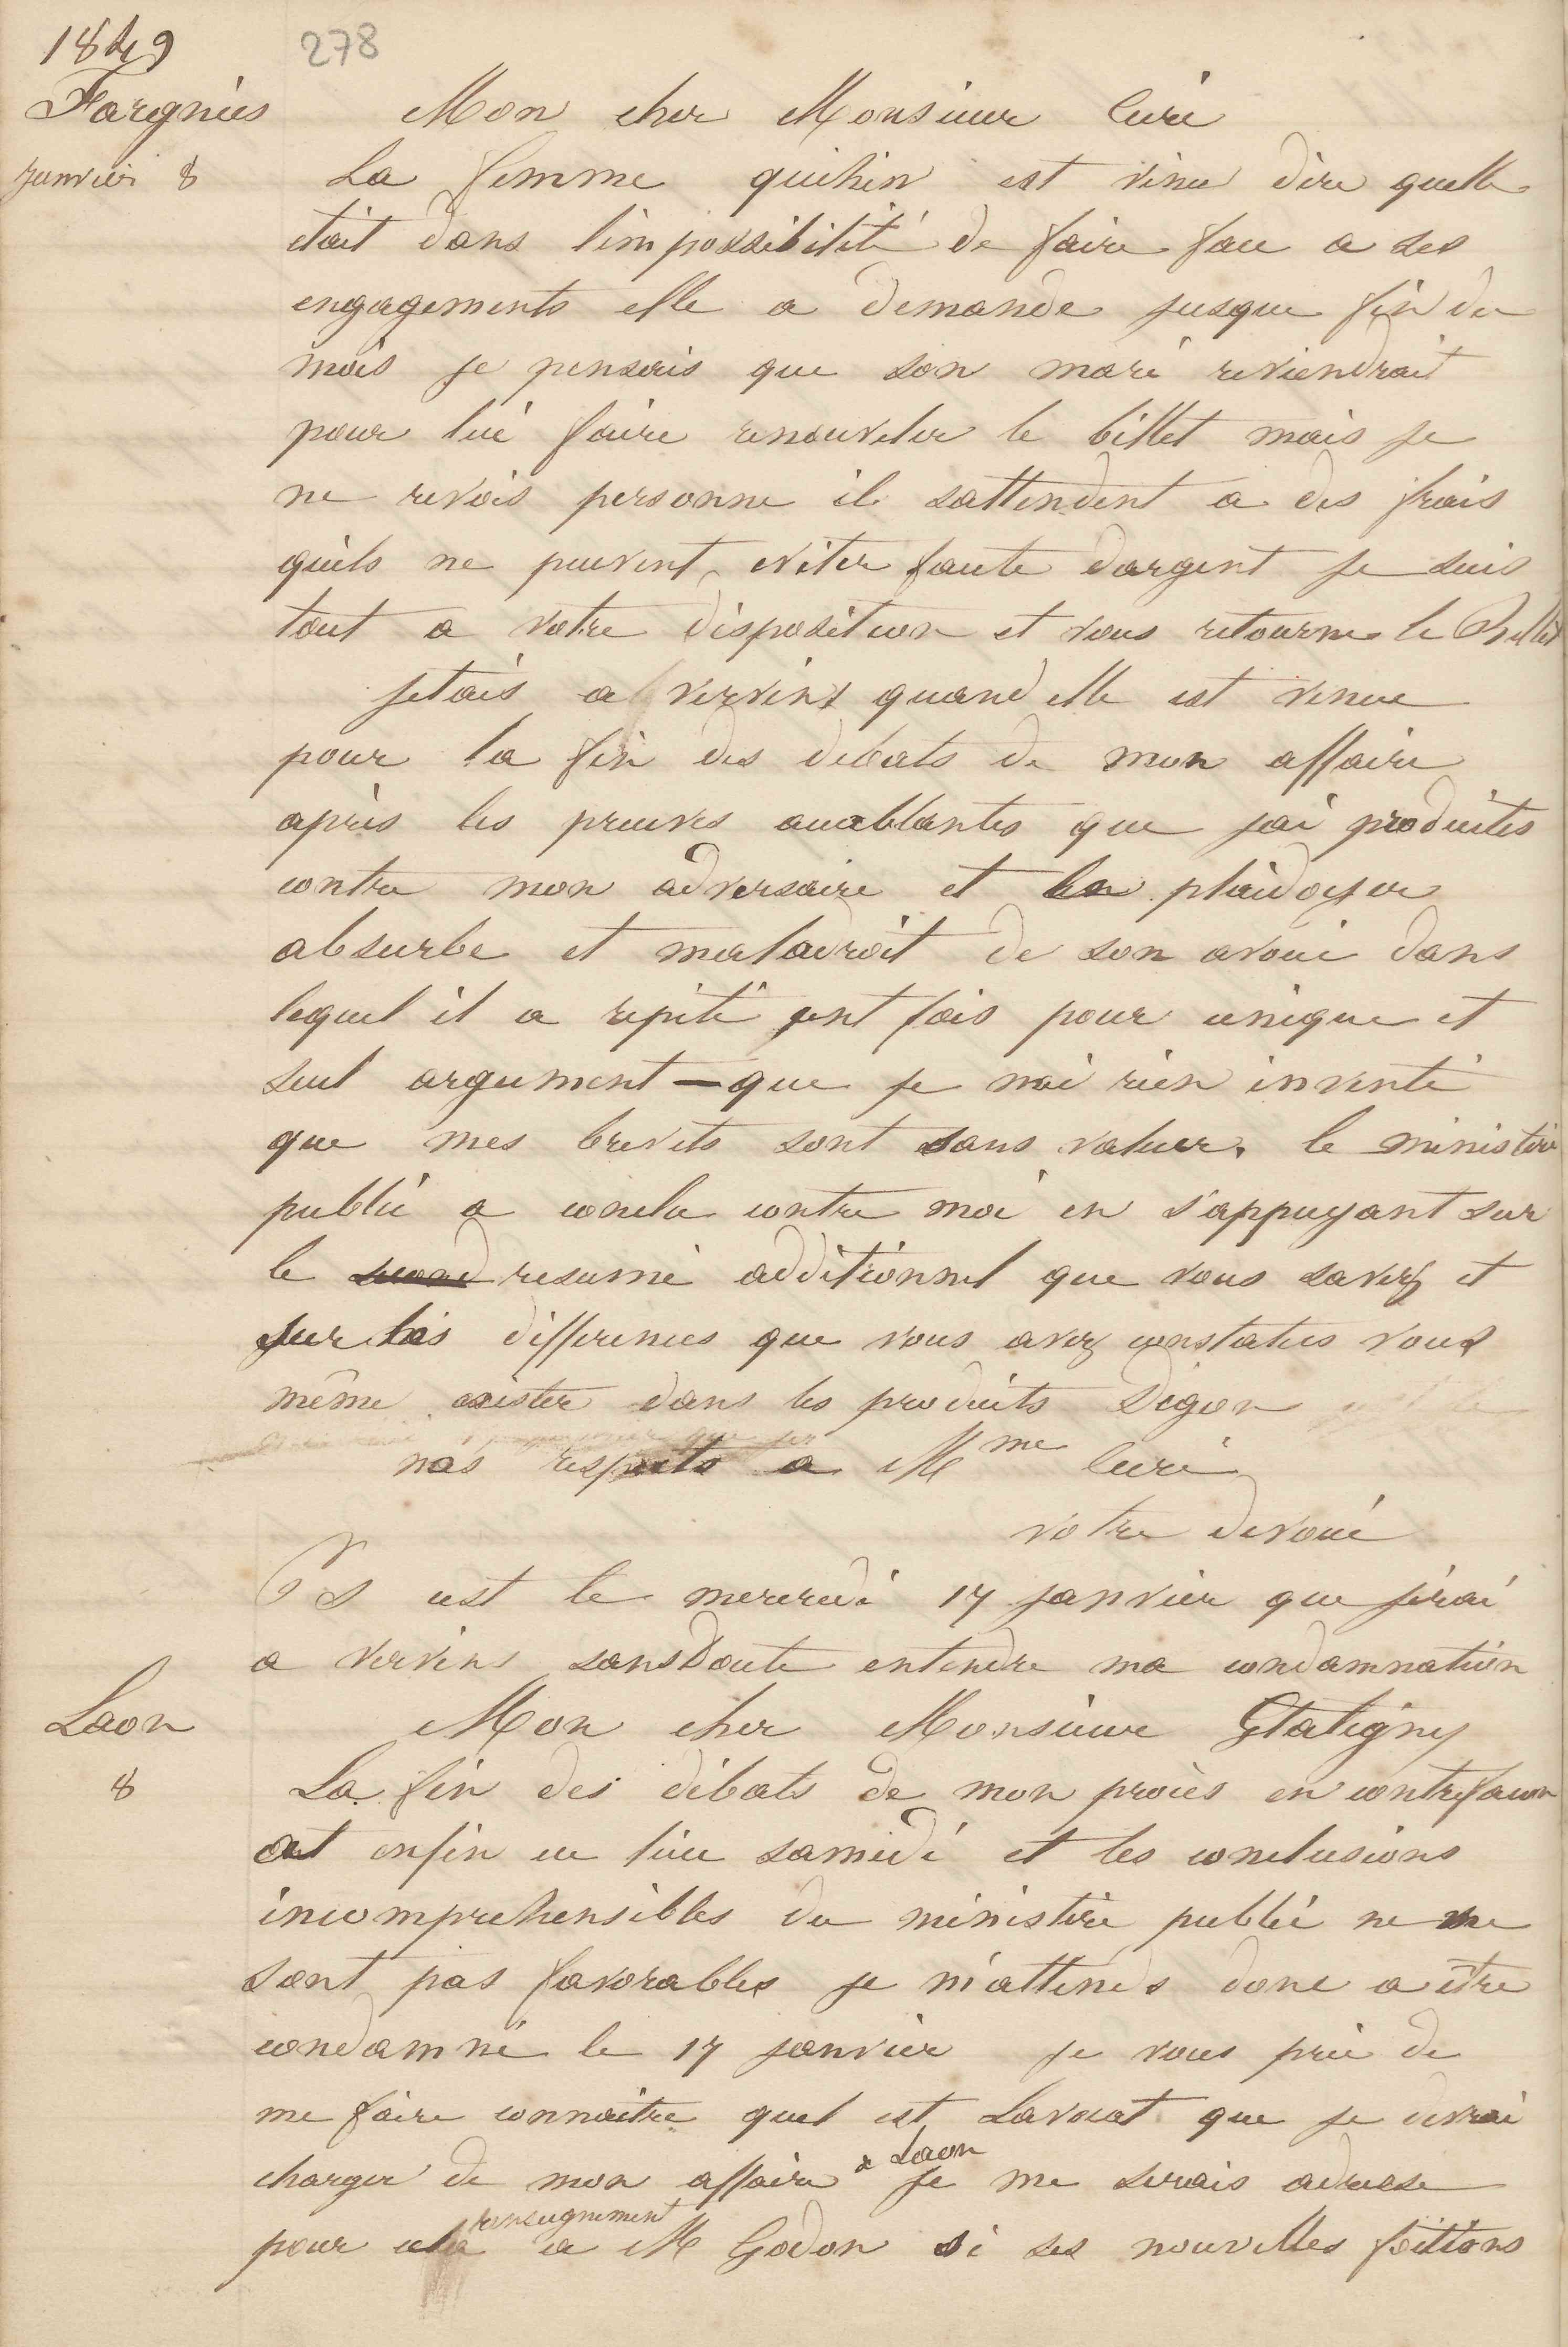 1849
278
Fargniès
Mon cher Monsieur Curé
janvier 8
La femme quihin est venu dire quelle
etait dans l'impossibilité de faire face a ses
engagements elle a demande jusque fin du
mois je pensais que son mari reviendrait
pour lui faire renouveler le billet mais je
ne revois personne il sattendent a des frais
quils ne peuvent eviter faute dargent je suis
tout a votre disposition et vous retourne le Billet
jetais a vervins quand elle est venue
pour la fin des debats de mon affaire
après les preuves accablantes que jai produites
contre mon adversaire et le plaidoyer
absurbe et maladroit de son avoué dans
lequel il a répété cent fois pour unique et
seul argument — que je nai rien inventé
que mes brevets sont sans valeur. le ministère
public a conclu contre moi en s'appuyant sur
le second resumé additionnel que vous savez et
sur les differences que vous avez constatees vous
même exister dans les produits Degon
nos respects a Mme Curé
votre devoué
PS cest le mercredi 17 janvier que jirai
a vervins sans Doute entendre ma condamnation
Laon
Mon cher Monsieur Gtatigny
8
La fin des débats de mon procès en contrefacon
ont enfin eu lieu samedi et les conclusions
incomprehensibles du ministère public ne me
sont pas favorables je m'attends donc a être
condamné le 17 janvier je vous prie de
me faire connaitre quel est Lavocat que je devrai
charger de mon affaire a Laon je me serais adresse
pour ce renseignement a M Godon si ses nouvelles foittions